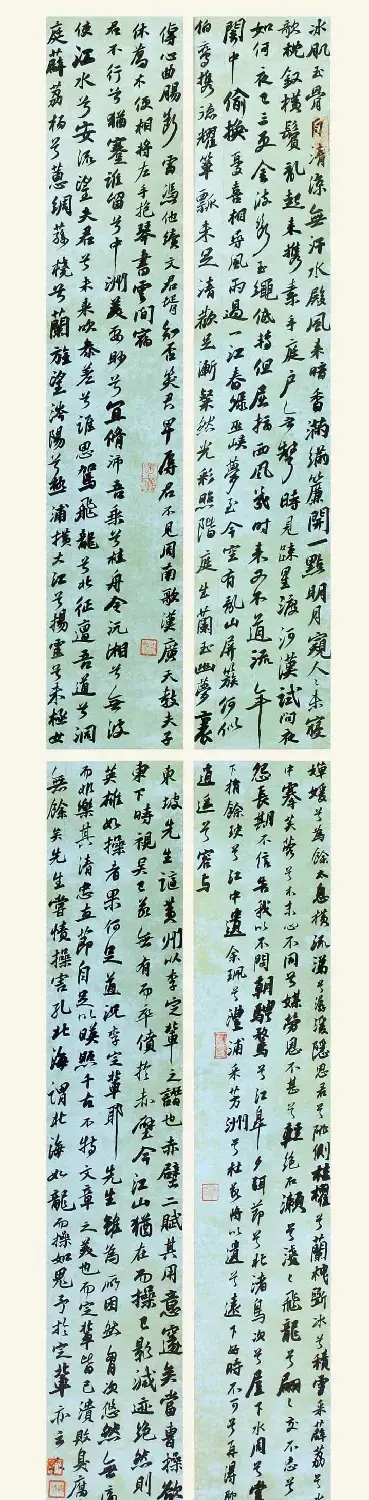 冰肌玉骨自清涼無汗水殿風來暗香滿繡簾開一點明月窺人人未寢
欹枕釵橫鬢亂起來攜素手庭戶無聲時見疎星渡河漢試問夜
如何夜已三更金波淡玉繩低轉但屈指西風幾時來又不道流年
闇中偷換憂喜相尋風雨過一江春綠巫峽夢至今空有亂山屏簇何似
伯鸞攜德耀簞瓢未足清歡足漸粲然光彩照階庭生蘭玉幽夢裏
傳心曲腸斷處憑他續文君壻知否笑君卑辱君不見周南歌漢廣天教夫子
休喬木便相將左手抱琴書雲間宿
君不行兮猶蹇誰留兮中洲美要眇兮宜脩沛吾乘兮桂舟令沅湘兮無波
使江水兮安流望夫君兮未來吹參差兮誰思駕飛龍兮北征邅吾道兮洞
庭薜荔柏兮蕙綢蓀橈兮蘭旌望涔陽兮極浦橫大江兮揚靈兮未極女
嬋媛兮為余太息橫流涕兮潺湲隱思君兮陫側桂櫂兮蘭枻斲冰兮積雪采薜荔兮水
中搴芙蓉兮木末心不同兮媒勞恩不甚兮輕絕石瀨兮淺淺飛龍兮翩翩交不忠兮
怨長期不信告我以不閒朝騁騖兮江皋夕弭節兮北渚鳥次兮屋下水周兮堂
下捐余玦兮江中遺余珮兮澧浦采芳洲兮杜若將以遺兮遠下女時不可兮再得聊
逍遥兮容與
東坡先生謫黃州以李定輩之譖也赤壁二賦其用意邃矣當曹操欲
東下時視吳已若無有而卒僨於赤壁今江山猶在而操已影滅迹絕然則
英雄如操者果何足道況李定輩耶先生雖為所困然胸次悠然無處
而非樂其清忠直節自足以暎照千古不特文章之美也而定輩皆已潰敗臭腐
無餘矣先生嘗憤操害孔北海謂北海如龍而操如鬼予於定輩亦云